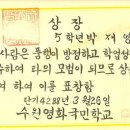 상장
5학년박
사람은 품행이 방정하고 학업성
하여 타의 모범이 되므로 상
여 하여 이를 표창함
단기4288년 3월 26일
수진영화국민학교